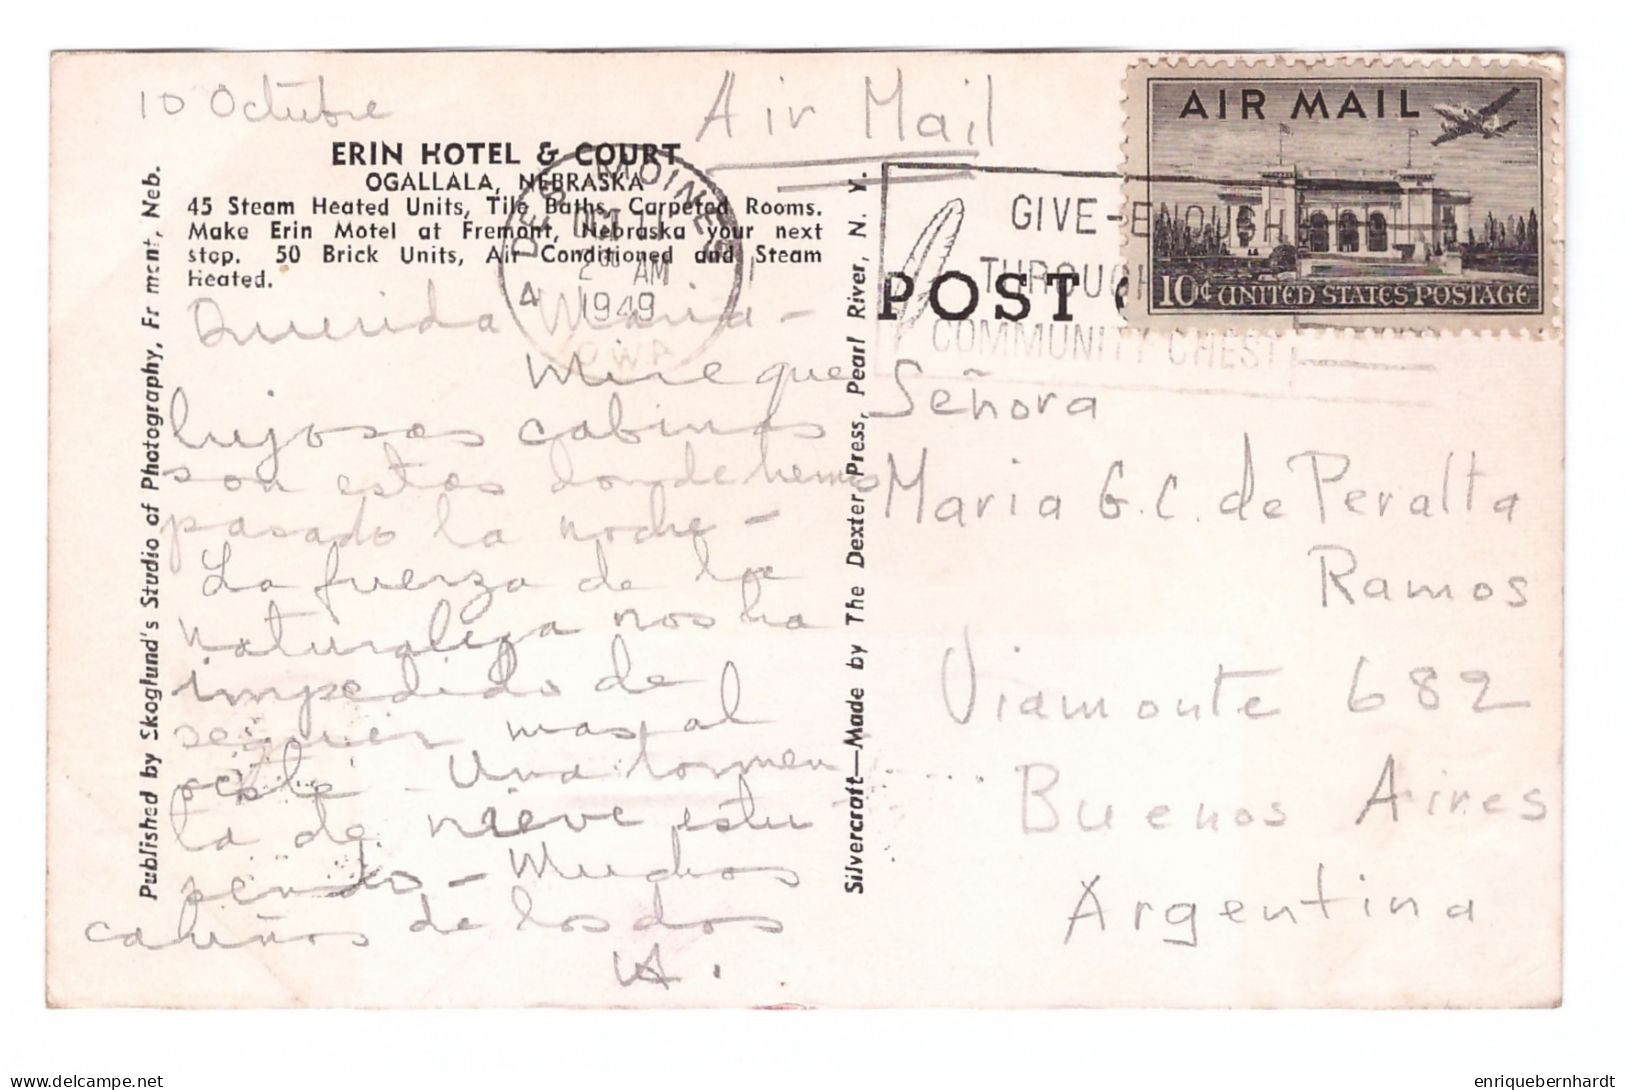 10 Octubre
Air Mail
ERIN HOTEL & COURT
OGALLALA, NEBRASKA
45 Steam Heated Units, Tile Baths, Carpeted Rooms.
Make Erin Motel at Fremont, Nebraska your next
stop. 50 Brick Units, Air Conditioned and Steam
Heated.
DES MOINES
OCT
2 00 AM
1949
IOWA
4
GIVE-ENOUGH
THROUGH
COMMUNITY CHEST
AIR MAIL
10¢ UNITED STATES POSTAGE
POST
Querida Maria -
Mire que
lujosas cabinas
son estas donde hemos
pasado la noche -
La fuerza de la
naturaleza nos ha
impedido de
seguir mas al
oeste - Una tormen
ta de nieve estu
pendo - Muchos
cariños de los dos
A.
Señora
Maria G. C. de Peralta
Ramos
Viamonte 682
Buenos Aires
Argentina
Published by Skoglund's Studio of Photography, Fremont, Neb.
Silvercraft—Made by The Dexter Press, Pearl River, N. Y.
delcampe.net
enriquebernhardt